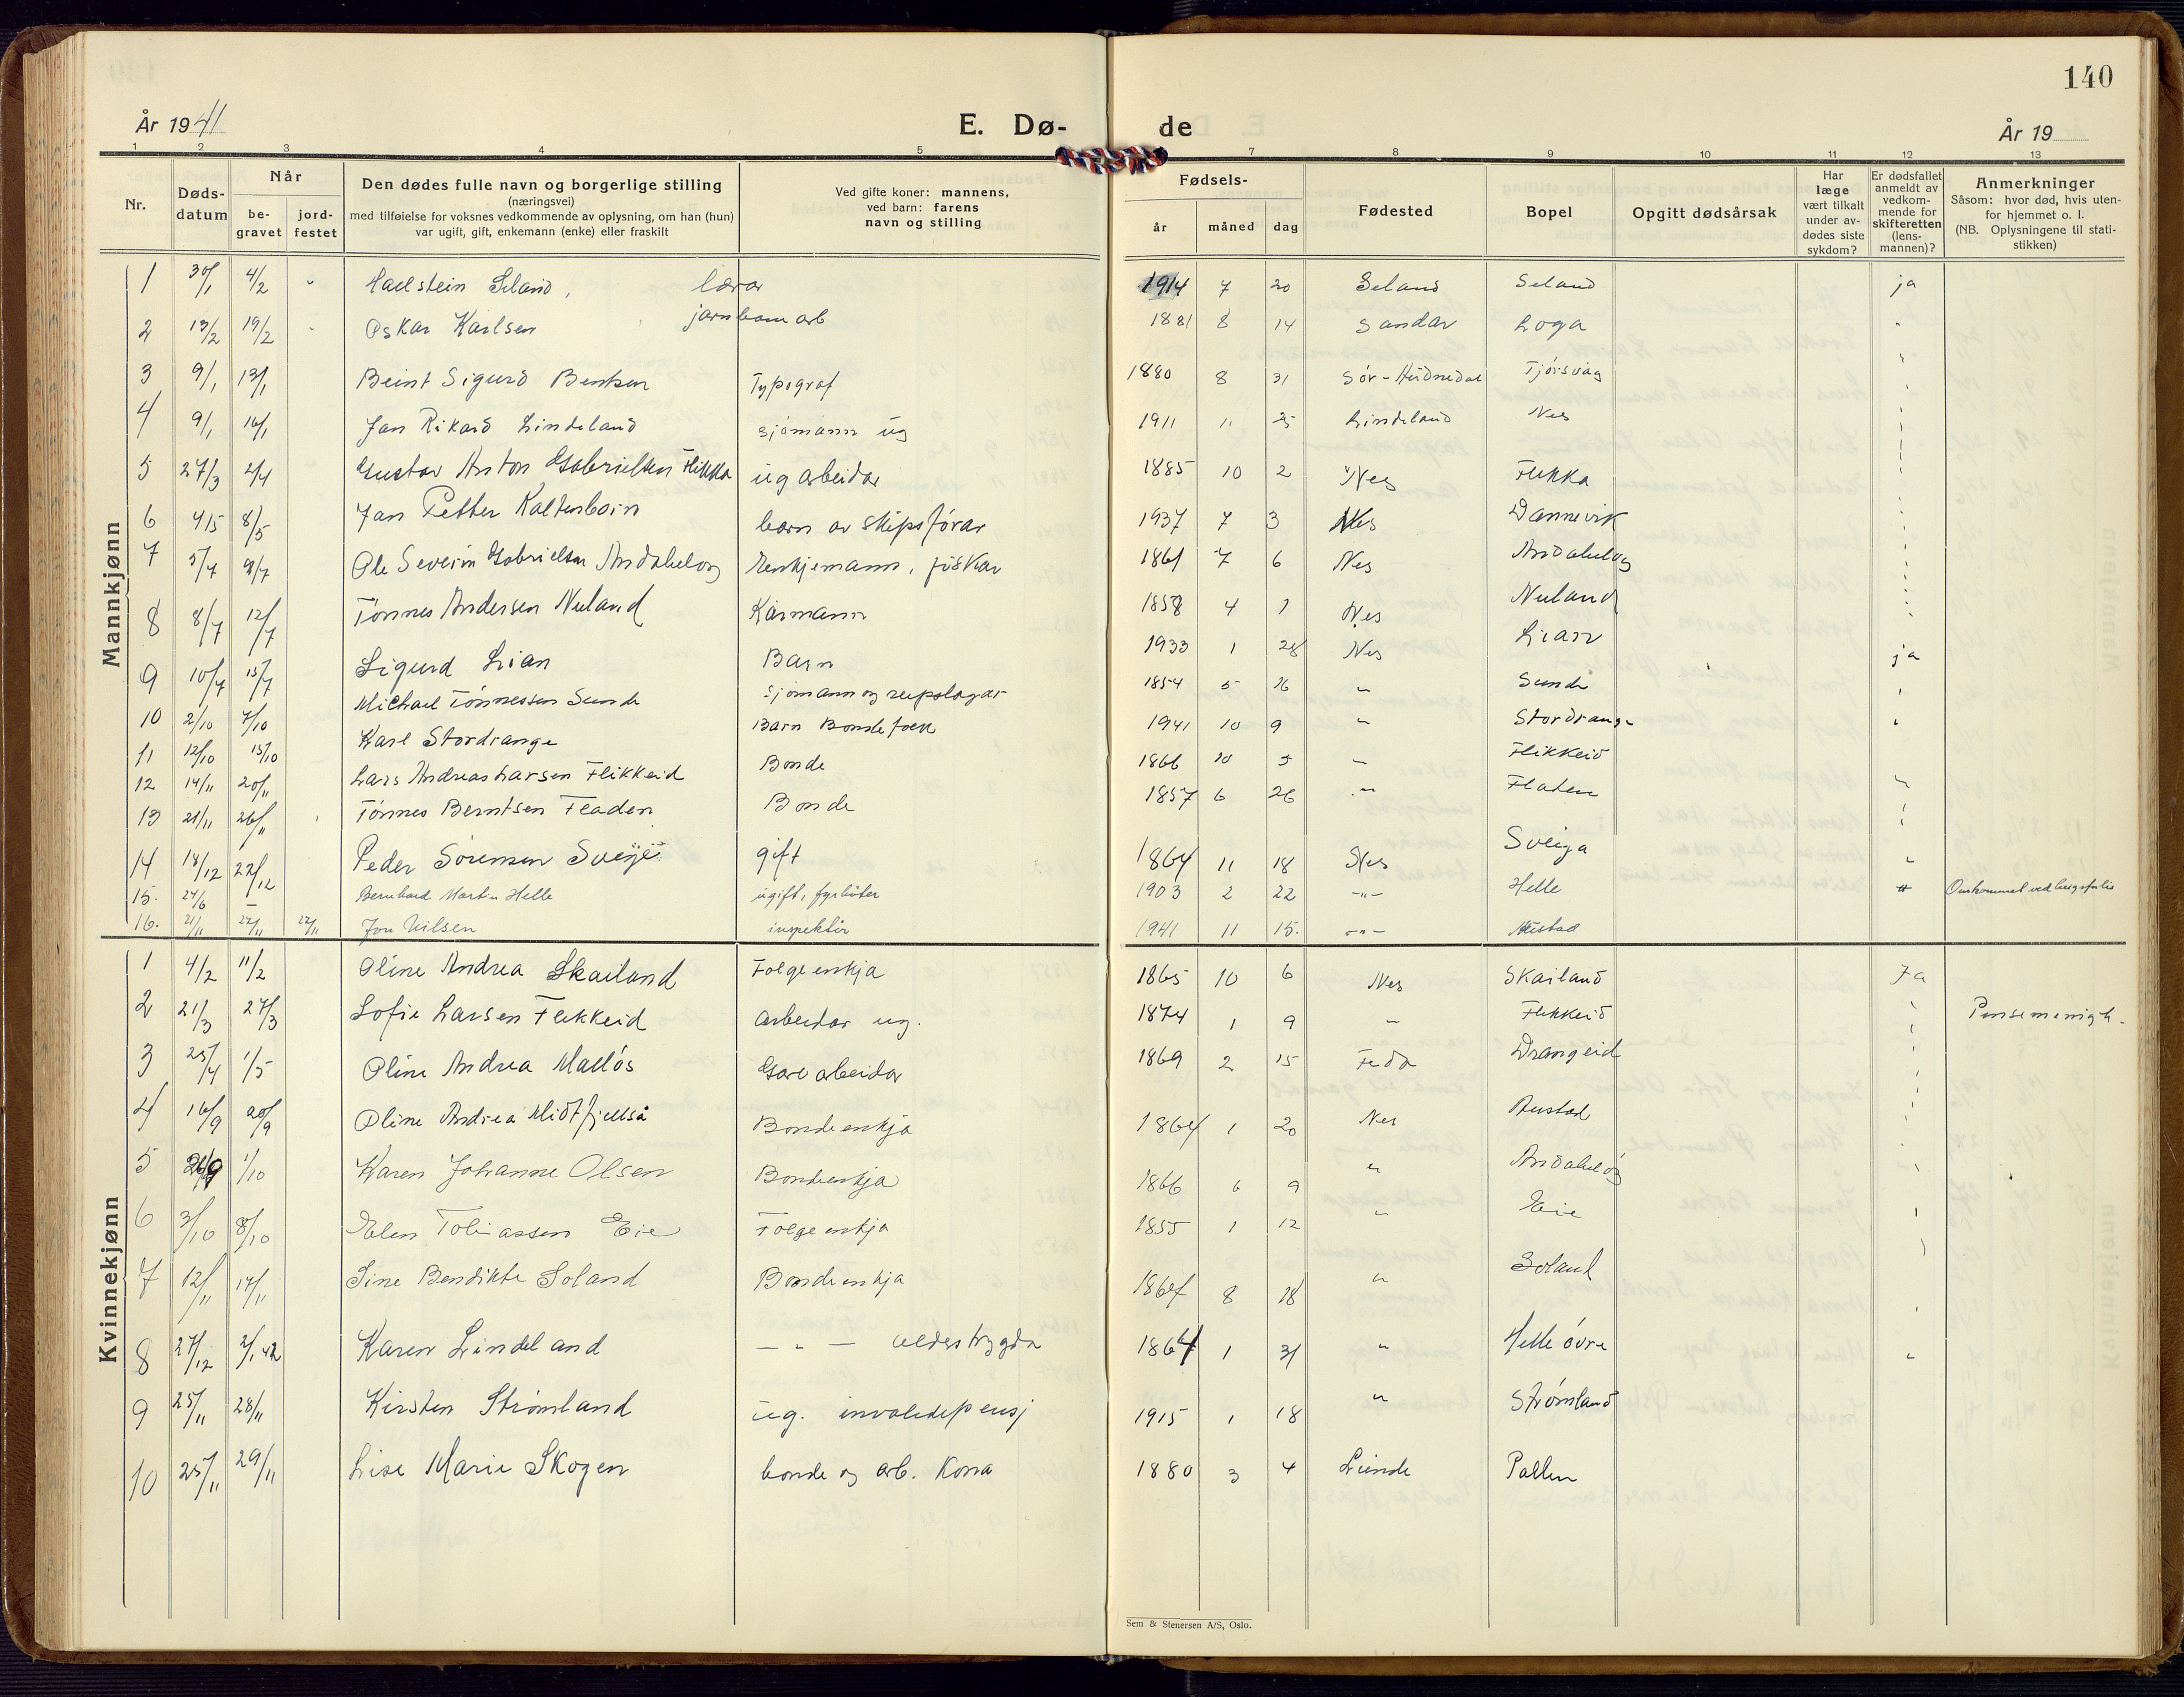 140
År 1941
E. Dø-
de
År 19
1 2 3 4 5 7 8 9 10 11 12 13
Nr.
Døds-datum
Når
be-gravet
jord-festet
Den dødes fulle navn og borgerlige stilling
(næringsvei)
med tilføielse for voksnes vedkommende av oplysning, om han (hun)
var ugift, gift, enkemann (enke) eller fraskilt
Ved gifte koner: mannens,
ved barn: farens
navn og stilling
Fødsels-
år måned dag
Fødested
Bopel
Opgitt dødsårsak
Har læge vært tilkalt under av-dødes siste sykdom?
Er dødsfallet anmeldt av vedkom-mende for skifteretten (lens-mannen)?
Anmerkninger
Såsom: hvor død, hvis uten-
for hjemmet o. l.
(NB. Oplysningene til stati-
stikken)
Mannkjønn
1 30/1 4/2 " Hallstein Seland, lærar 1914 7 20 Seland Seland ja
2 13/2 19/2 " Oskar Karlsen jarnbanearb 1881 8 14 Sandar Loga "
3 9/1 13/1 Beint Sigurd Bentsen Typograf 1880 8 31 Sør-Audnedal Tjørsvåg
4 9/1 16/1 Jan Rikard Lindeland sjømann ug 1911 11 25 Lindeland Nes
5 27/3 2/4 Gustav Anton Gabrielsen Flikka ug arbeidar 1885 10 2 Nes Flikka
6 4/5 8/5 Jan Petter Kaltenborn barn av skipsførar 1937 7 3 Nes Dannevik
7 5/7 9/7 Ole Severin Gabrielsen Andabeløy Enkjemann, fiskar 1861 7 6 Nes Andabeløy
8 8/7 12/7 Tønnes Andersen Nuland Kårmann 1858 4 1 Nes Nuland
9 10/7 15/7 Sigurd Lian Barn 1933 1 28 Nes Lian ja
10 2/10 7/10 Michael Tønnessen Sunde Sjømann og reipslagar 1854 5 16 " Sunde
11 12/10 15/10 Karl Stordrange Barn Bondefolk 1941 10 9 " Stordrange
12 14/11 20/11 Lars Andreas Larsen Flikkeid Bonde 1866 10 5 " Flikkeid
13 21/11 26/11 Tønnes Berntsen Fladen Bonde 1857 6 26 " Fladen
14 18/12 22/12 Peder Sørensen gift 1864 11 18 Nes Sveiga "
15. 24/6 – Bernhard Martin Helle ugift, fyrbøter 1903 2 22 -"- Helle Omkommet ved krigsforlis
16. 21/11 27/11 27/11 Jon Nilsen inspektør 1941 11 15. -"-
Kvinnekjønn
1 4/2 11/2 Oline Andrea Skailand Folgeenkja 1865 10 6 Nes Skailand Ja
2 21/3 27/3 Sofie Larsen Flikkeid arbeidar ug. 1874 1 9 " Flikkeid Pinsemenigh.
3 25/4 1/5 Oline Andrea Malløs Gare arbeidar 1869 2 15 Feda Drangeid
4 16/9 20/9 Oline Andrea Midtfjellså Bondeenkja 1864 1 20 Nes Austad
5 26/9 1/10 Karen Johanne Olsen Bondeenkja 1866 6 9 " Andabeløy
6 3/10 8/10 Elen Tobiassen Eie Folgeenkja 1855 1 12 " Eie
7 12/11 17/11 Sine Bendikte Soland Bondeenkja 1864 8 18 " Soland
8 27/12 2/1 42 Karen Lindeland – " – alderstrygda 1864 1 31 " Helle øvre "
9 25/11 28/11 Kirsten Strømland ug. invalidepensj 1915 1 18 " Strømland
10 25/11 29/11 Lise Marie Skogen bonde og arb. kona 1880 3 4 Lunde Pallen
Sem & Stenersen A/S, Oslo.